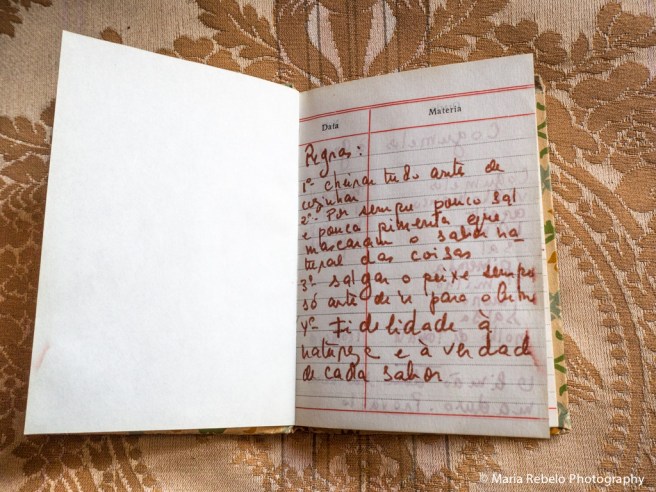 Data Materia
Regras:
1º- cheirar tudo antes de
cozinhar
2º- Pôr sempre pouco sal
e pouca pimenta que
mascaram o sabor na-
tural das coisas
3º- salgar o peixe sempre
só antes de ir para o lume
4º- Fidelidade à
natureza e à verdade
de cada sabor
© Maria Rebelo Photography